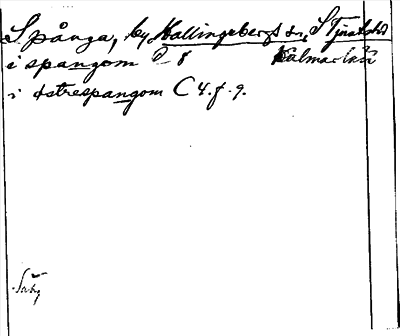 Spånga, by Hallingebergs sn, S Tjusts hd
i spangom D 8 Kalmar län
i østrespangom C 4. f. 9.